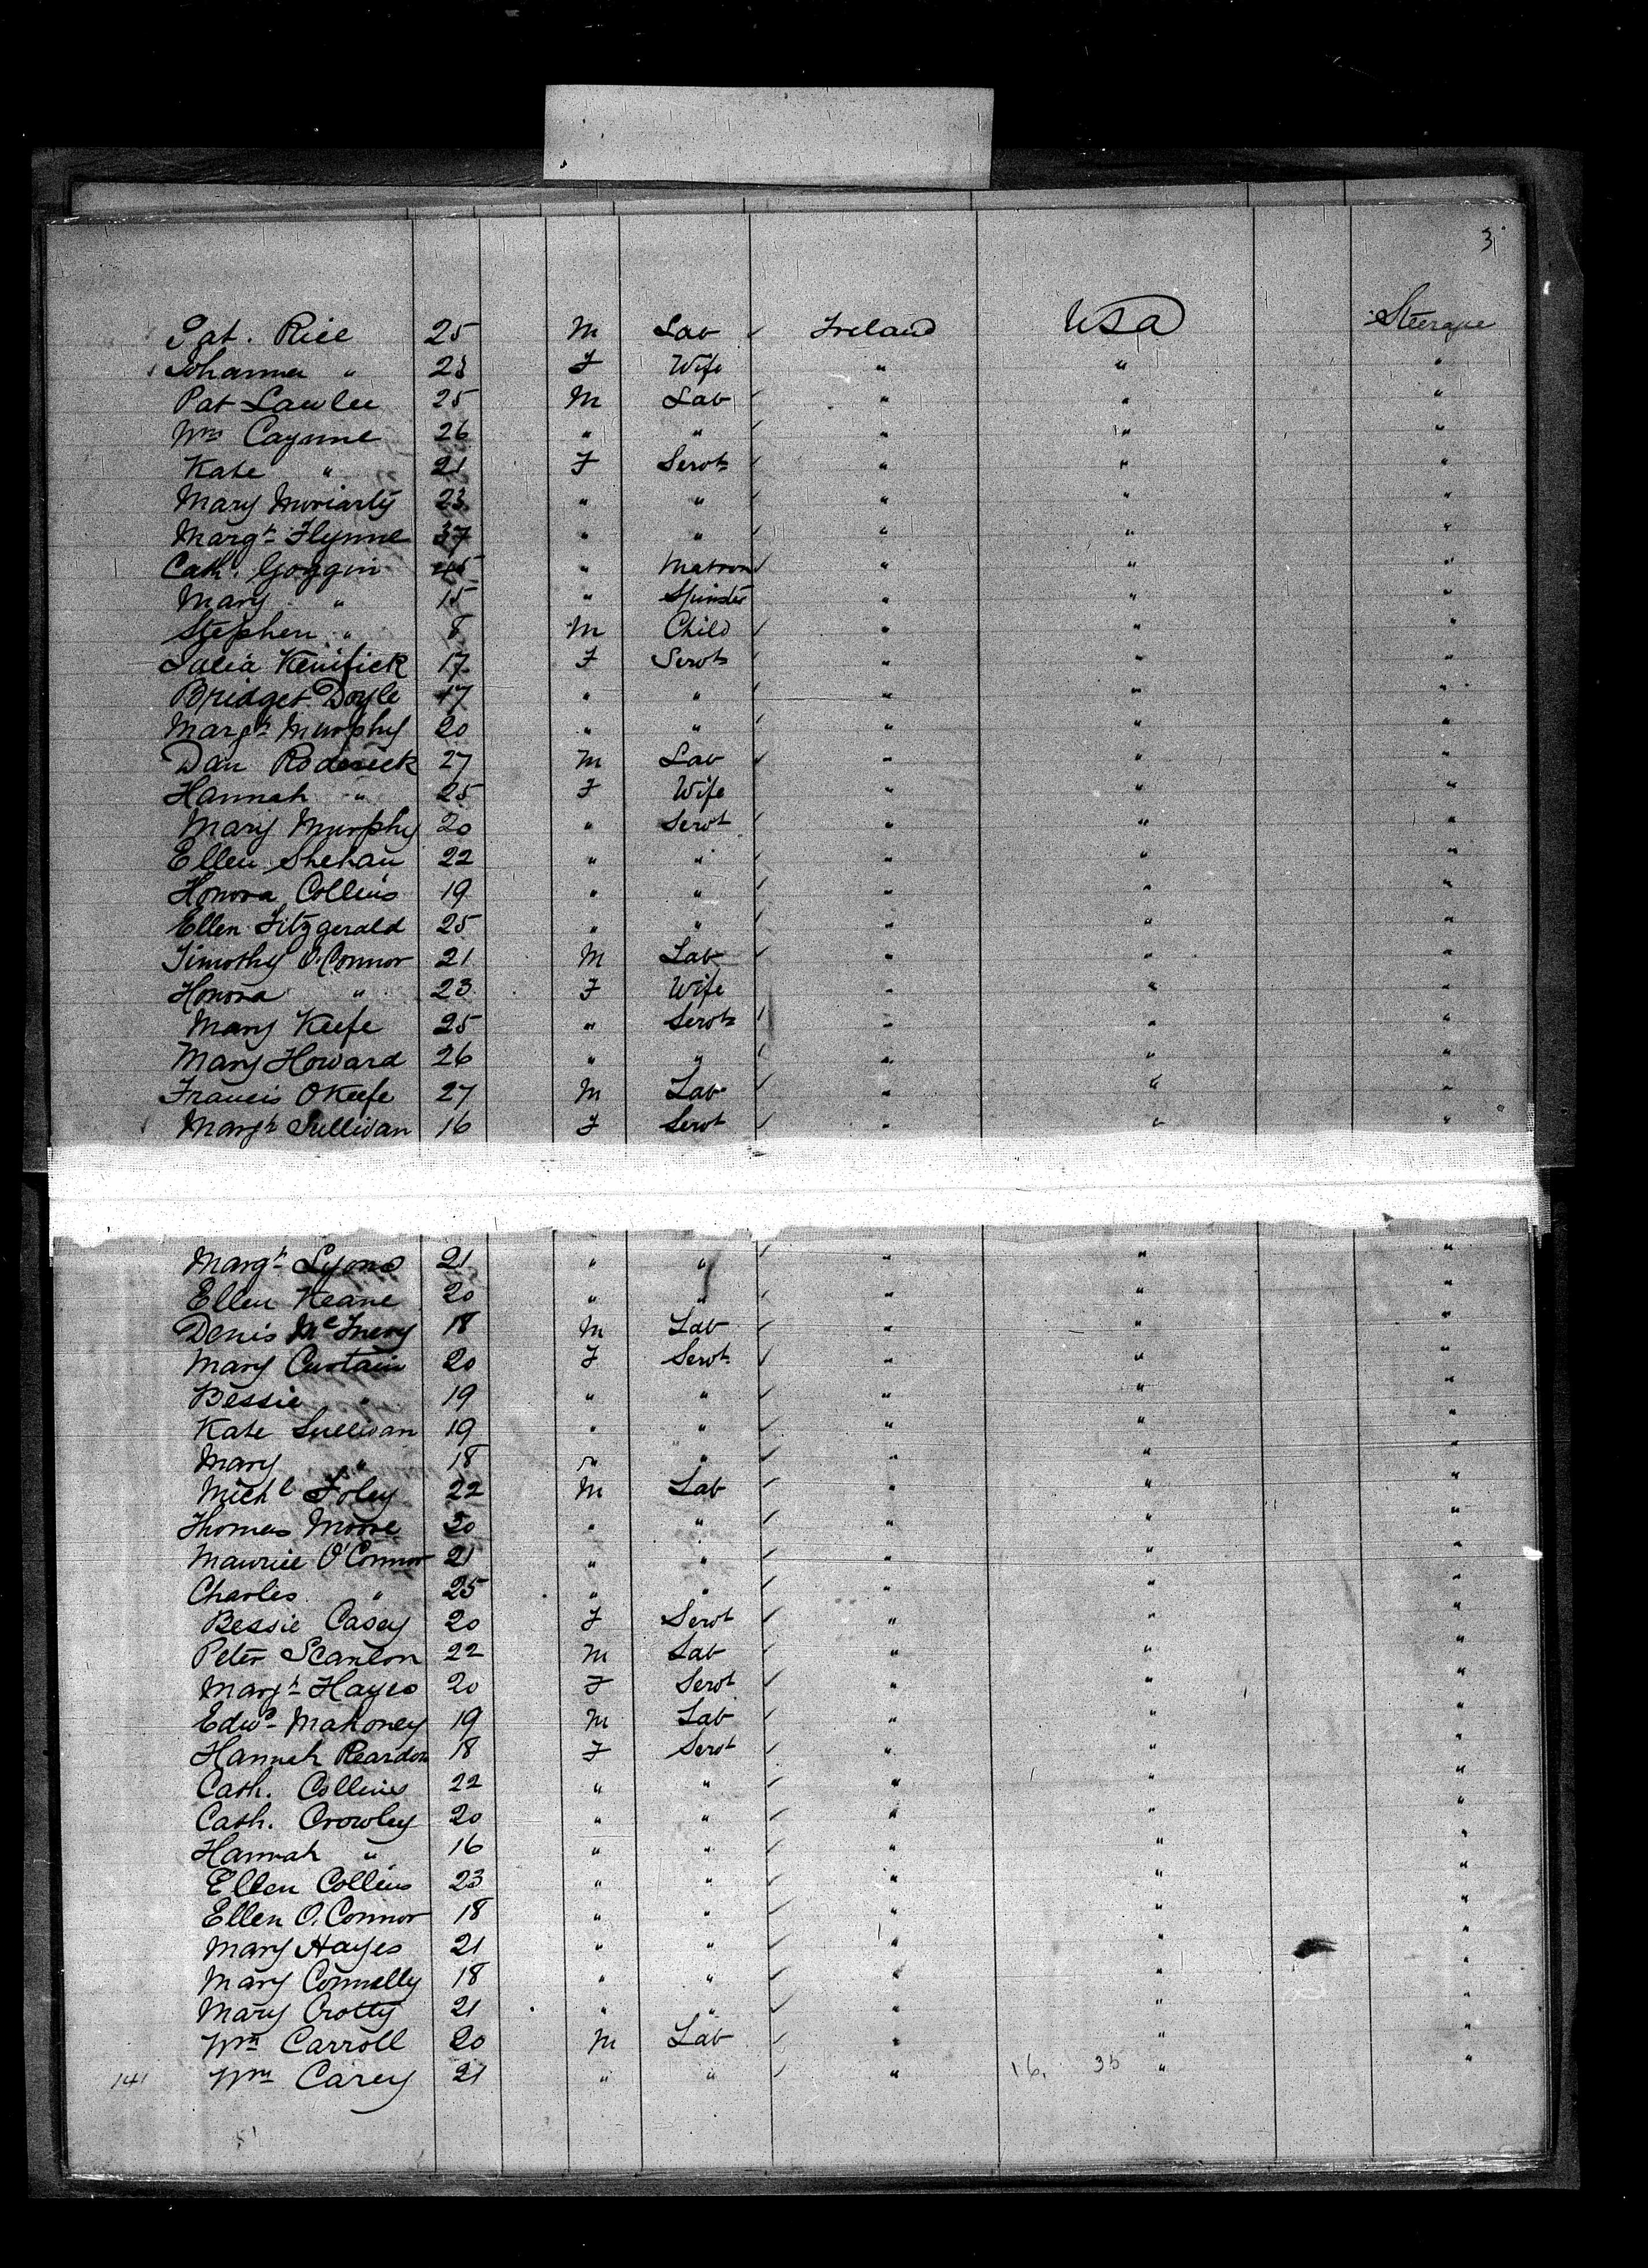 3
Pat. Rice 25 M Lab Ireland USA Steerage
Johanna " 23 F Wife " " "
Pat Lawlee 25 M Lab " " "
Wm Caynne 26 " " " " "
Kate " 21 F Servt " " "
Mary Moriarty 23 " " " " "
Margt Flynne 37 " " " " "
Cath. Goggin 45 " Matron " " "
Mary " 15 " Spinster " " "
Stephen " 8 M Child " " "
Julia Kenifick 17 F Servt " " "
Bridget Doyle 17 " " " " "
Margt Murphy 20 " " " " "
Dan Roderick 27 M Lab " " "
Hannah " 25 F Wife " " "
Mary Murphy 20 " Servt " " "
Ellen Shehan 22 " " " " "
Honora Collins 19 " " " " "
Ellen Fitzgerald 25 " " " " "
Timothy O'Connor 21 M Lab " " "
Honora " 23 F Wife " " "
Mary Keefe 25 " Servt " " "
Mary Howard 26 " " " " "
Francis OKeefe 27 M Lab " " "
Margt Sullivan 16 F Servt " " "
Margt Lyons 21 " " " " "
Ellen Keane 20 " " " " "
Denis McInery 18 M Lab " " "
Mary Curtain 20 F Servt " " "
Bessie " 19 " " " " "
Kate Sullivan 19 " " " " "
Mary " 18 " " " " "
Michl Foley 22 M Lab " " "
Thomas Moore 20 " " " " "
Maurice O'Connor 21 " " " " "
Charles " 25 " " " " "
Bessie Casey 20 F Servt " " "
Peter Scanlon 22 M Lab " " "
Margt Hayes 20 F Servt " " "
Edwd Mahoney 19 M Lab " " "
Hannah Reardon 18 F Servt " " "
Cath. Collins 22 " " " " "
Cath. Crowley 20 " " " " "
Hannah " 16 " " " " "
Ellen Collins 23 " " " " "
Ellen O'Connor 18 " " " " "
Mary Hayes 21 " " " " "
Mary Connelly 18 " " " " "
Mary Crotty 21 " " " " "
Wm Carroll 20 M Lab " " "
141 Wm Carey 21 " " " 16. 35 " "
51